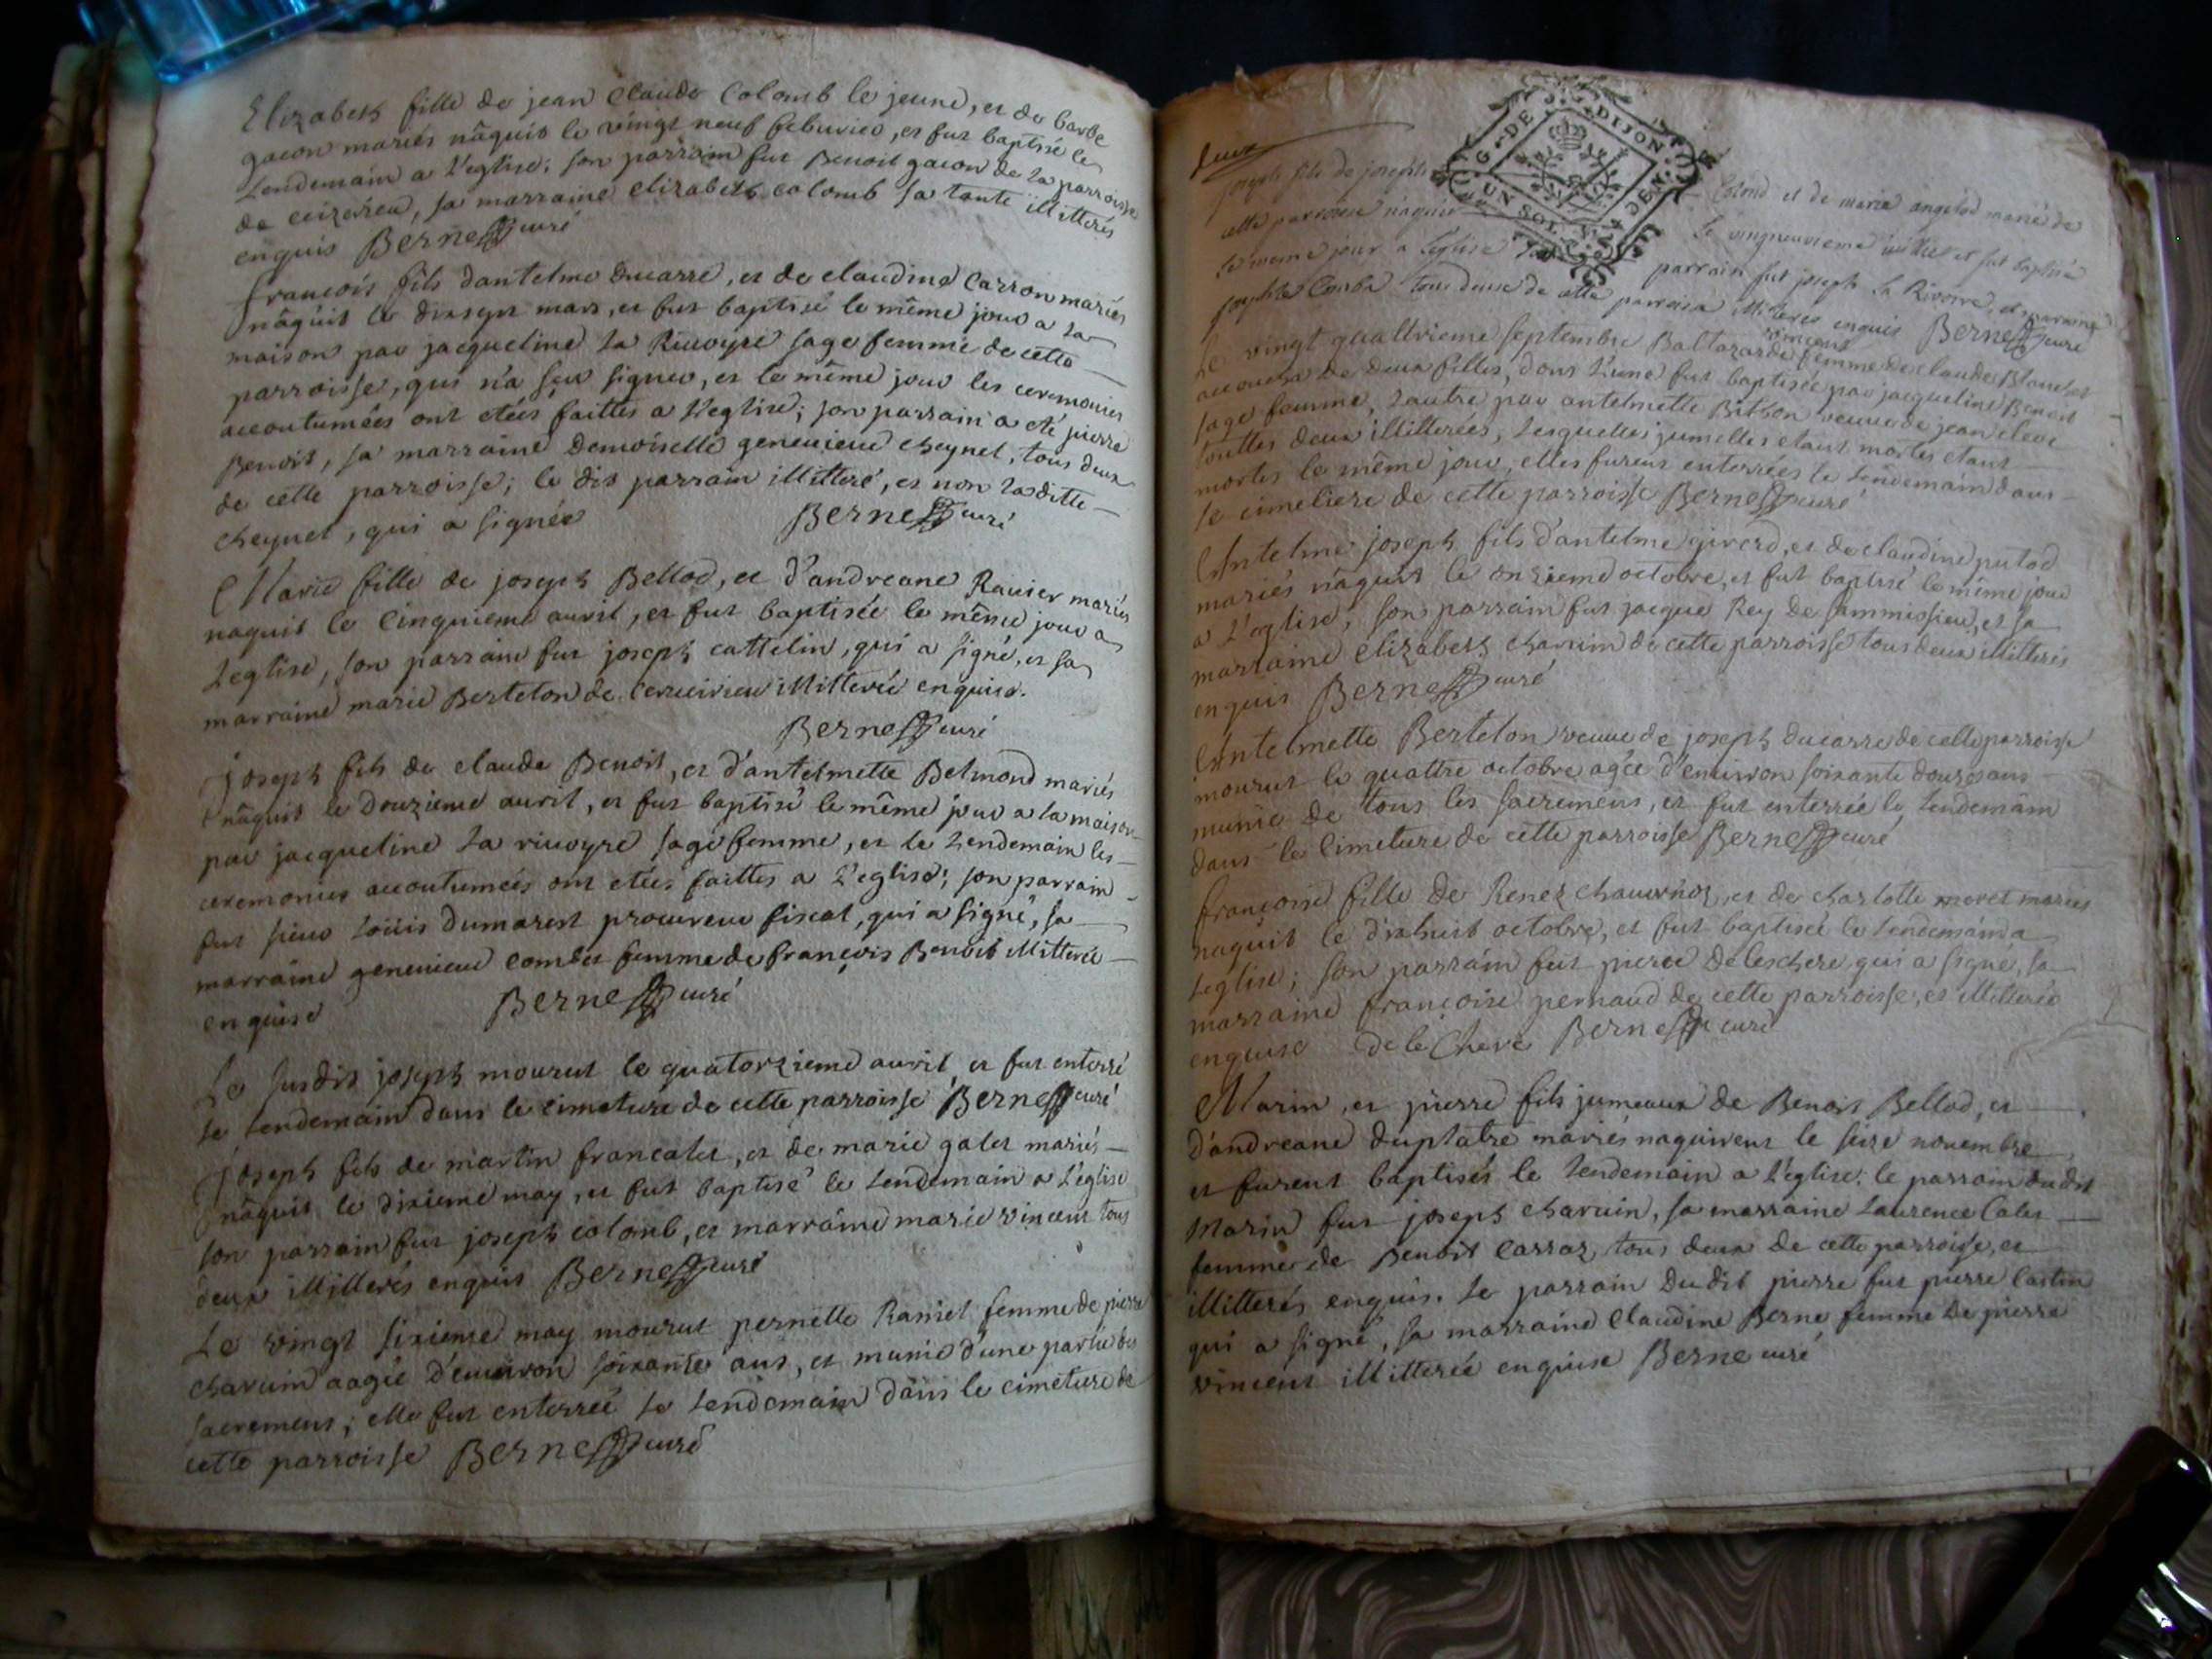 Elizabeth fille de jean claude Colomb le jeune, et de barbe
gacon mariés nâquit le vingt neuf feburier, et fut baptisé le
lendemain a l'eglise; son parrain fut Benoit gacon de la parroisse
de ceizerieu, sa marraine elizabeth colomb sa tante illitterés
enquis Berne curé
françois fils dantelme ducarre, et de claudine Carron mariés
nâquit le dixsept mars, et fut baptisé le même jour a la
maison par jacqueline la Riuoyre sage femme de cette
parroisse, qui n'a sçu signer, et le même jour les ceremonies
accoutumées ont etées faittes a l'eglise; son parrain a eté pierre
Benoit, sa marraine Demoiselle geneuieue cheynel, tous deux
de cette parroisse; le dit parrain illitteré, et non la ditte
cheynel, qui a signée Berne curé
Marie fille de joseph Bellod, et d'andreane Rauier mariés
naquit le Cinquieme auril, et fut baptisée le même jour a
l'eglise, son parrain fut joseph cattelin, qui a signé, et sa
marraine marie Berteton de Ceruerieu illitterée enquise.
Berne curé
joseph fils de claude Benoit, et d'antelmette Belmond mariés
nâquit le Douzieme auril, et fut baptisé le même jour a la maison
par jacqueline la riuoyre sage femme, et le lendemain les
ceremonies accoutumées ont etées faittes a l'eglise; son parrain
fut sieur Loüis dumarest procureur fiscal, qui a signé, sa
marraine geneuieue combet femme de françois Benoit illitterée
enquise Berne curé
Le susdit joseph mourut le quatorzieme auril, et fut enterré
le lendemain dans le cimeture de cette parroisse Berne curé
joseph fils de martin francalet, et de marie galet mariés
nâquit le dixieme may, et fut baptisé le lendemain a l'eglise
son parrain fut joseph colomb, et marraine marie vincent tous
deux illitterés enquis Berne curé
Le vingt sixieme may mourut pernette Ramel femme de pierre
charuin aagée d'enuiron soixante ans, et munie d'une partie des
sacremens; elle fut enterrée le lendemain dans le cimeture de
cette parroisse Berne curé
G. DE DIJON
UN SOL
joseph fils de joseph Colond et de marie angelod marié de
cette parroisse naquit le vingneuvieme juillet et fut baptisé
le meme jour a l'eglise son parrain fut joseph la Rivoire, et marraine
josephte Comba tous deux de cette parroisse illiteres enquis Berne curé
vincent
Le vingt quattrieme septembre Baltazarde femme de claude Blanchet
accoucha de deux filles, dont l'une fut baptisée par jacqueline Benoit
sage femme, l'autre par antelmette Bitton veuue de jean cleve
touttes deux illitterées, lesquelles jumelles etant mortes etant
mortes le même jour, elles furent enterrées le lendemain dans
le cimetiere de cette parroisse Berne curé
Antelme joseph fils d'antelme girerd, et de claudine putod
mariés nâquit le onzieme octobre, et fut baptisé le même jour
a l'eglise, son parrain fut jacque Rey de sammissieu, et sa
marraine elizabeth charuin de cette parroisse tous deux illitterés
enquis Berne curé
Antelmette Berteton veuue de joseph ducarre de cette parroisse
mourut le quattre octobre agée d'enuiron soixante douze ans
munie de tous les sacremens, et fut enterrée le lendemain
dans le Cimeture de cette parroisse Berne curé
françoise fille de Renez chauuroz, et de charlotte moret mariés
naquit le dixhuit octobre, et fut baptisée le lendemain a
l'eglise; son parrain fut pierre delechere qui a signé, sa
marraine françoise pernaud de cette parroisse, et illitterée
enquise de le Chere Berne curé
Marin, et pierre fils jumeaux de Benoit Bellod, et
d'andreane duplatre mariés naquirent le seize nouembre
et furent baptisés le lendemain a l'eglise. le parrain dudit
Marin fut joseph charuin, sa marraine Laurence Calet
femme de Benoit Carraz, tous deux de cette parroisse, et
illitterés enquis. le parrain Dudit pierre fut pierre
qui a signé, sa marraine Claudine Berne femme de pierre
vincent illitterée enquise Berne curé